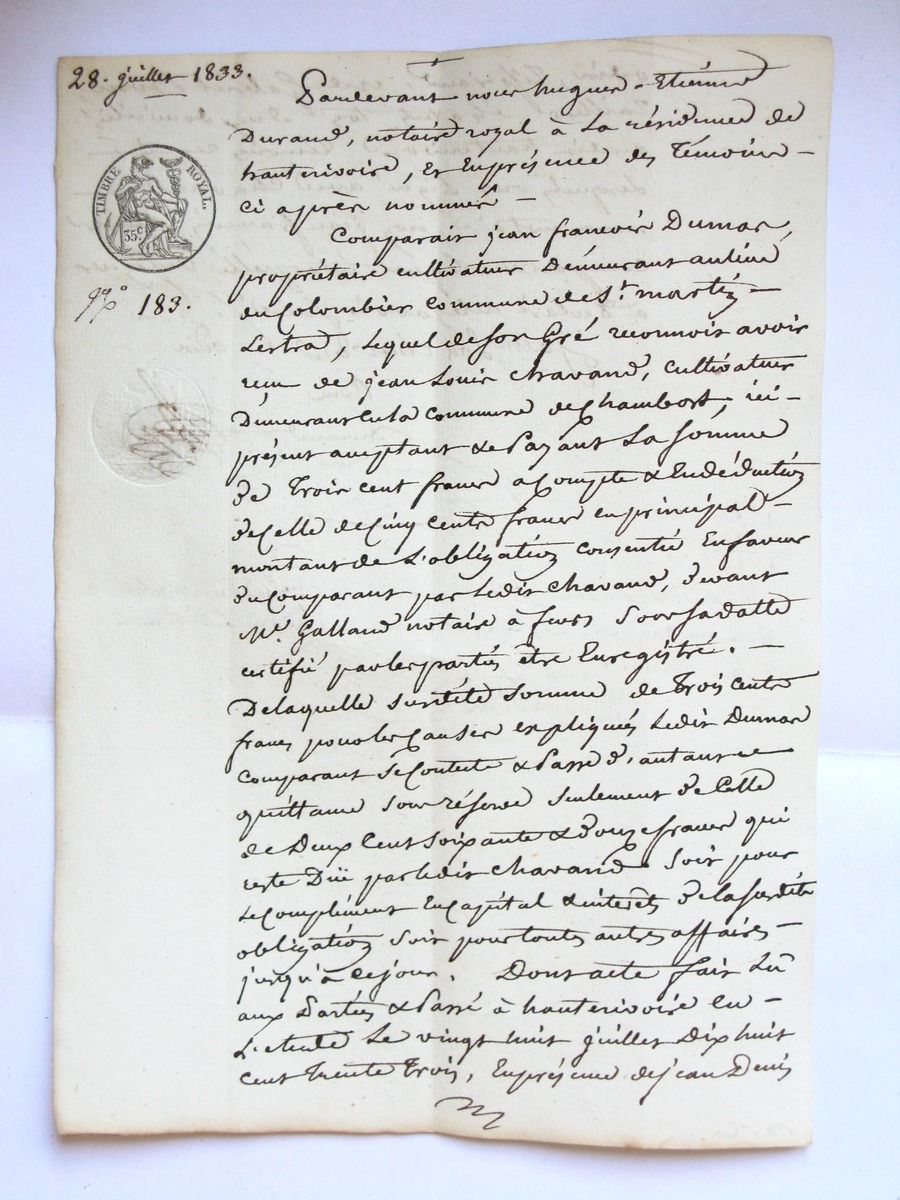 28. juillet 1833.
Pardevant nous hugues-Etienne
Durand, notaire royal à La résidence de
hauterivoire, Et Enprésence des Témoins –
ci après nommés –
TIMBRE ROYAL.
35c
Comparait jean francois Dumas,
propriétaire cultivateur Démeurant aulieu
du Colombier commune de St. martin –
Lestra, Lequel de son Gré reconnois avoir
183.
recu de jean Louis chavand, cultivateur
Démeurant en la commune de Chambost, ici –
présent acceptant & Payant La somme
de Trois cent francs acompte & Endéduction
de Celle de Cinq cents francs en principal –
montant de L'obligation consentie Enfaveur
du Comparant par Ledit chavand, devant
Me. Galland notaire à feurs Soussadatte
certifié par les parties être Enregistré. –
De laquelle susdite somme de Trois cents
francs pour les Causes expliqués Ledit Dumas
comparant se Contente & Passe d'autant
quittance sous réserve seulement de Celle
de Deux Cent soixante & douze francs qui
reste Düe par ledit chavand Soit pour
Le Complément En capital & intérêts de la susdite
obligation soit pour toutes autres affaires –
jusqu'à ce jour. Dont acte fait Lû
aux Parties & Passé à hauterivoire en –
L'etude Le vingt huit juillet Dix huit
cent trente Trois, Enprésence de jean Denis